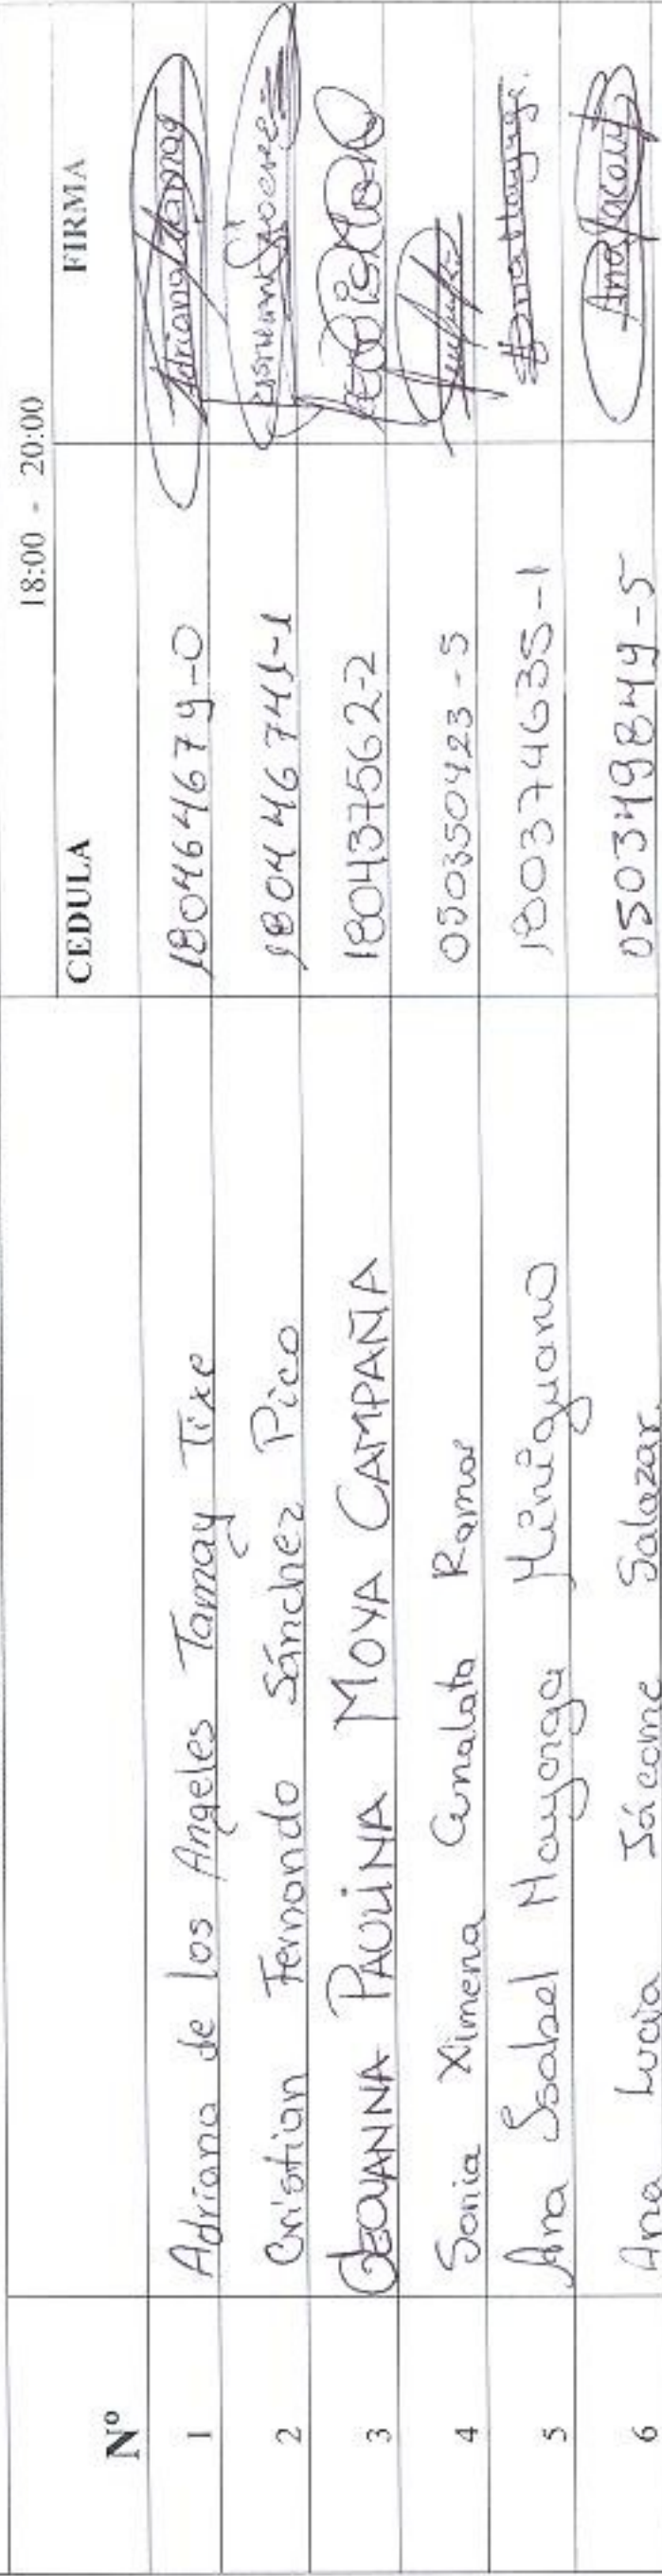 18:00 - 20:00
Nº CEDULA FIRMA
1 Adriana de los Angeles Tamay Tixe 180464679-0 Adriana Tamay
2 Cristian Fernando Sánchez Pico 180446741-1
3 GEOVANNA PAULINA MOYA CAMPAÑA 180437562-2
4 Sonia Ximena Ramos 050350423-5
5 Ana Isabel Mayorga Miniguano 180374635-1 Ana Mayorga.
6 Ana Lucia Jácome Salazar. 050349844-5